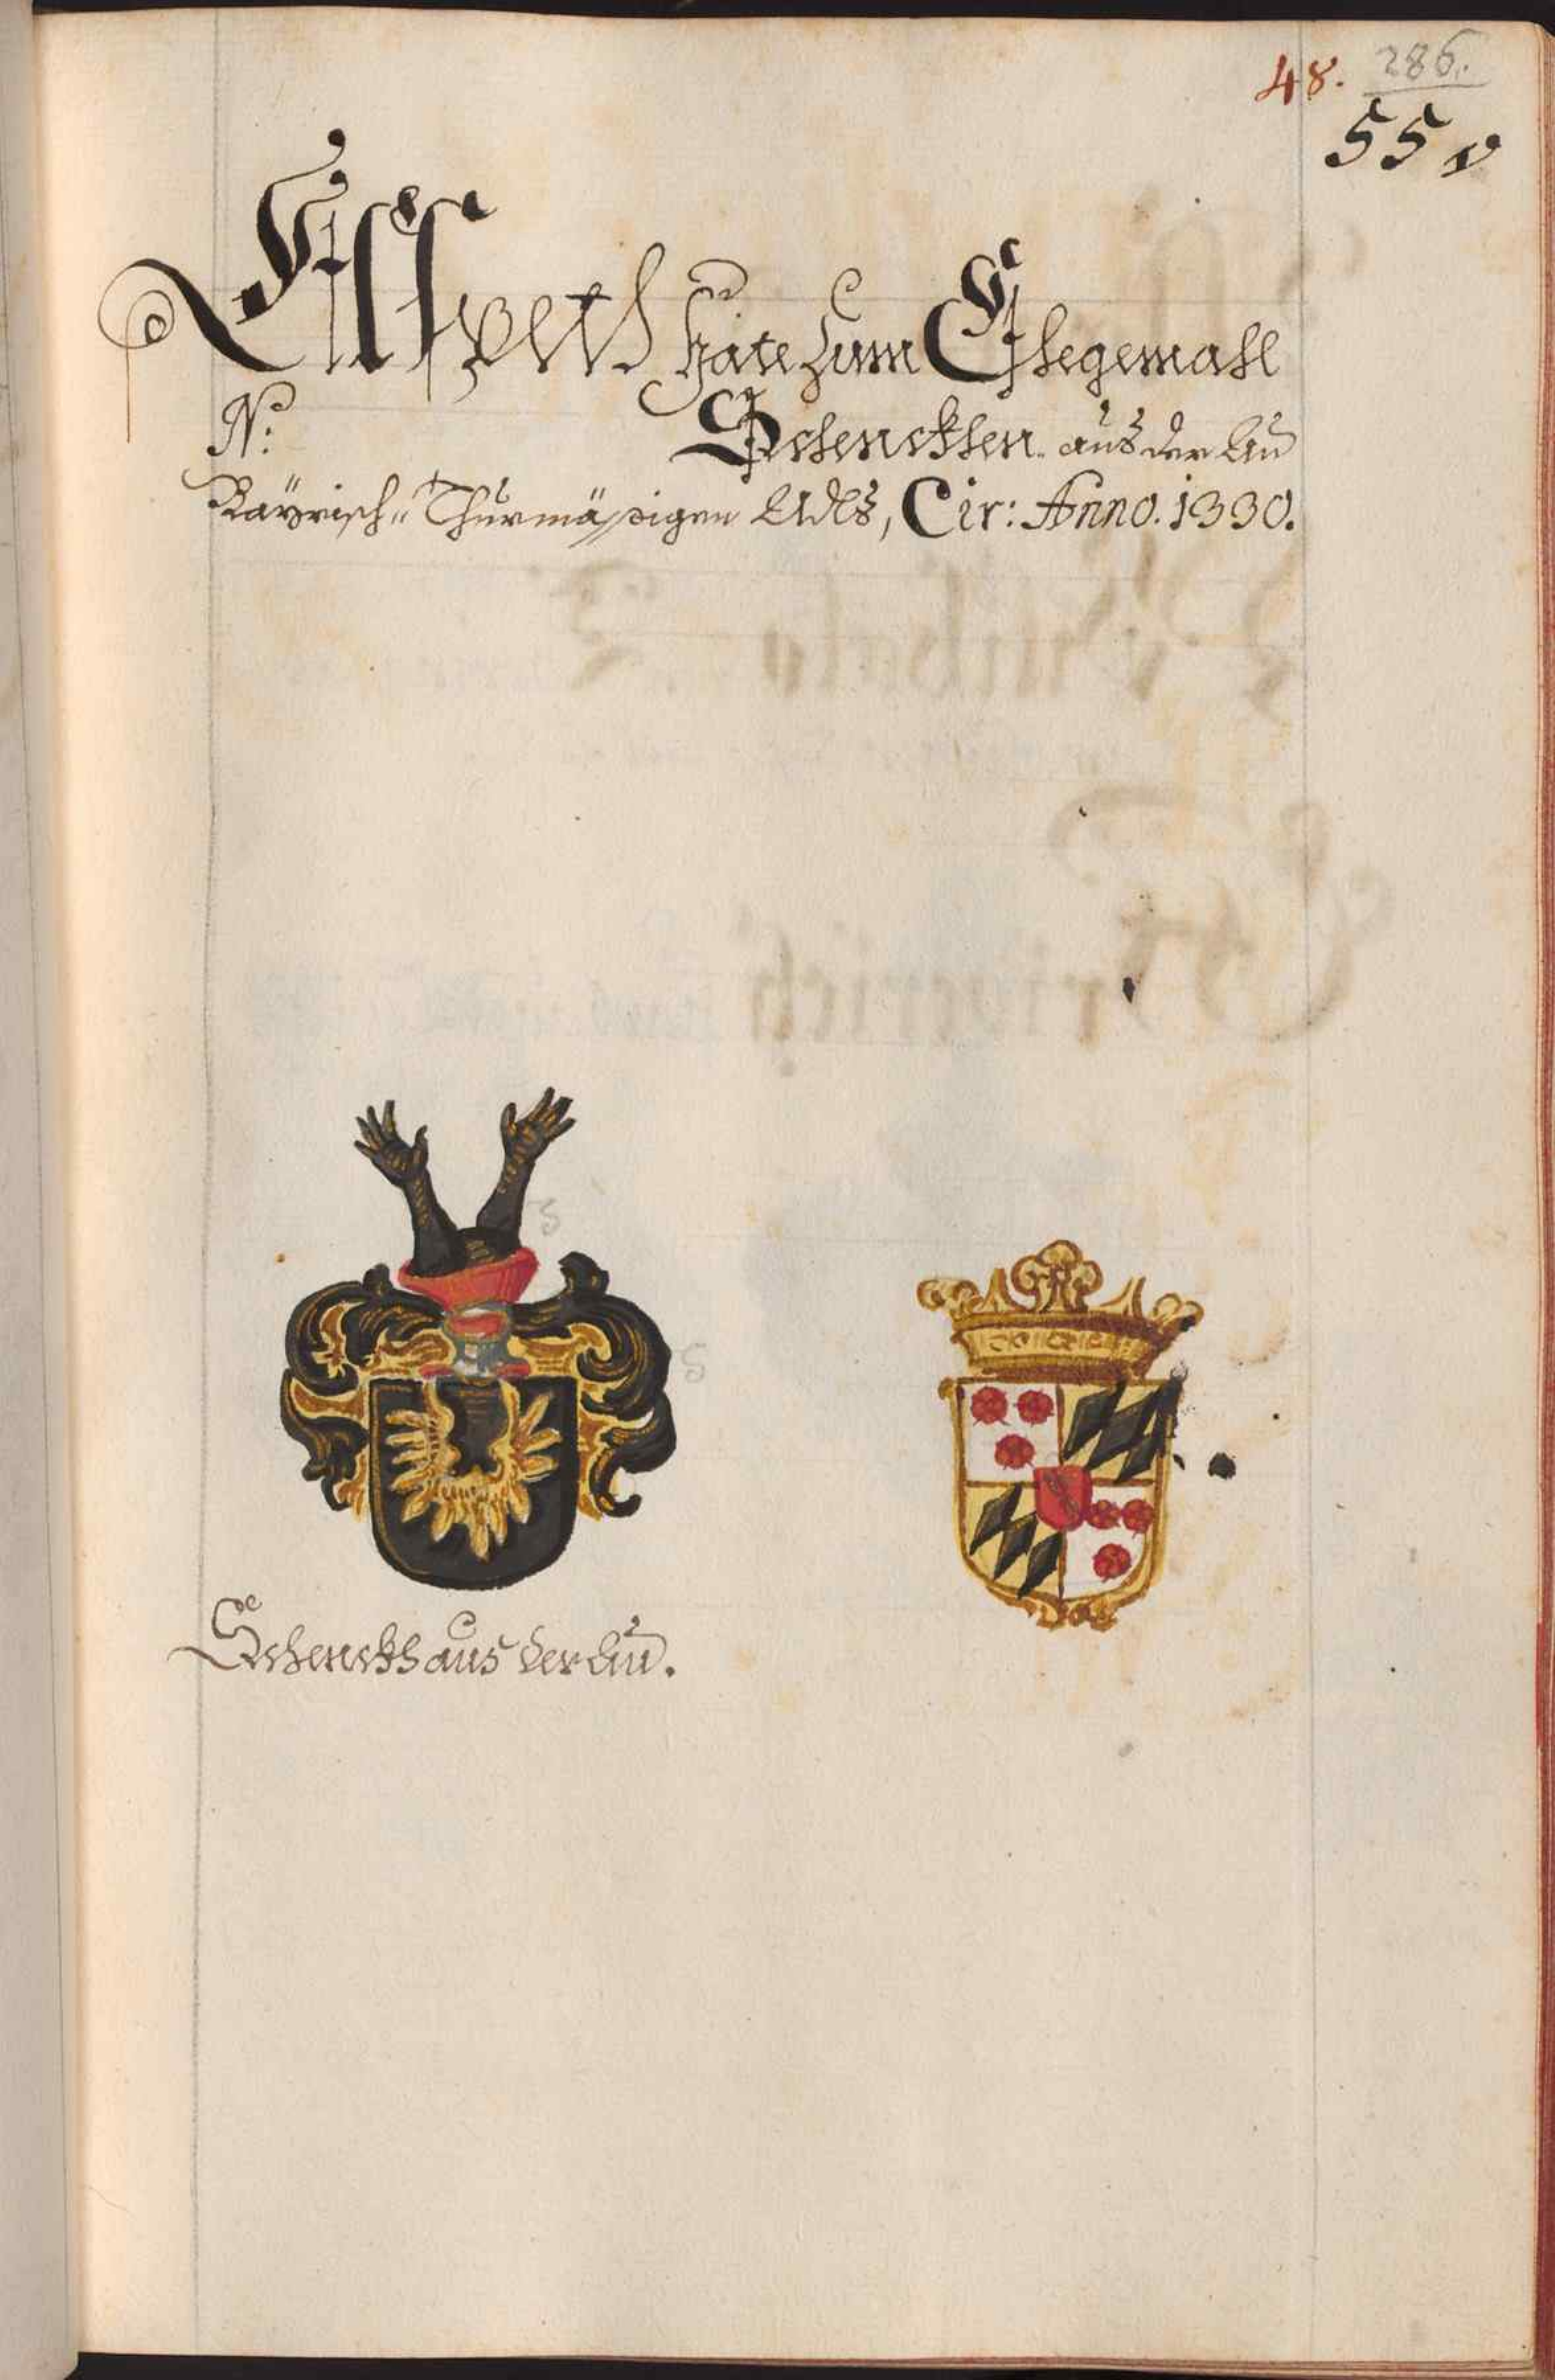 48. 286.
55
Elspeth hate zum Ehegemahl
N: Schenckhen aus der Au
Bayrisch: Thurmässigen Adls, Cir: Anno. 1330.
5
5
Schenckh aus der Au.